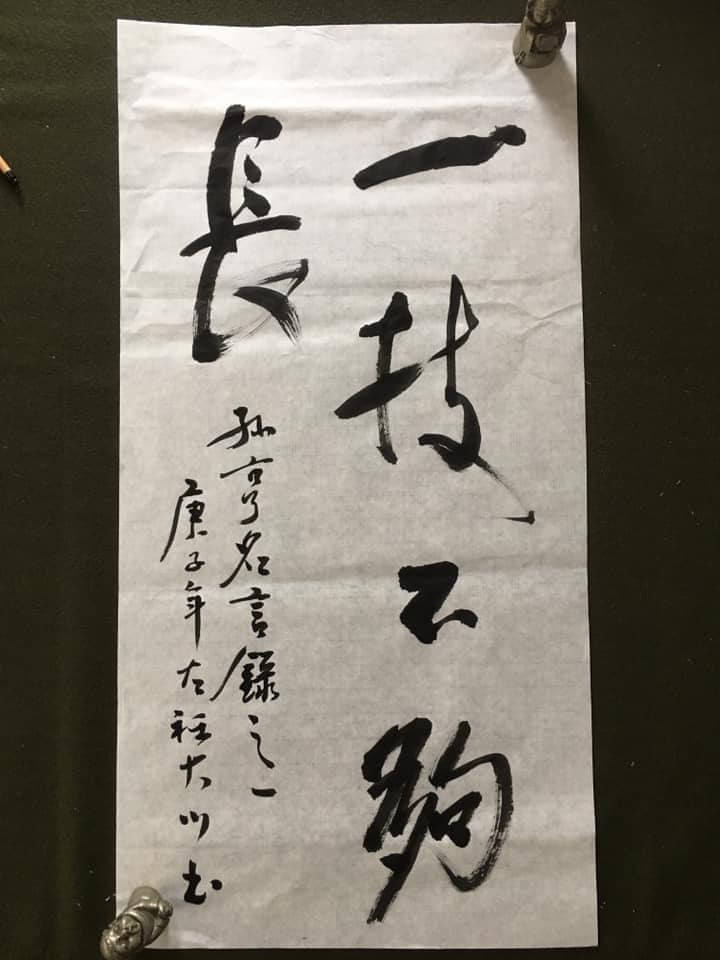 一技不夠
長
孫亨名言錄之一
庚子年左衽大川书